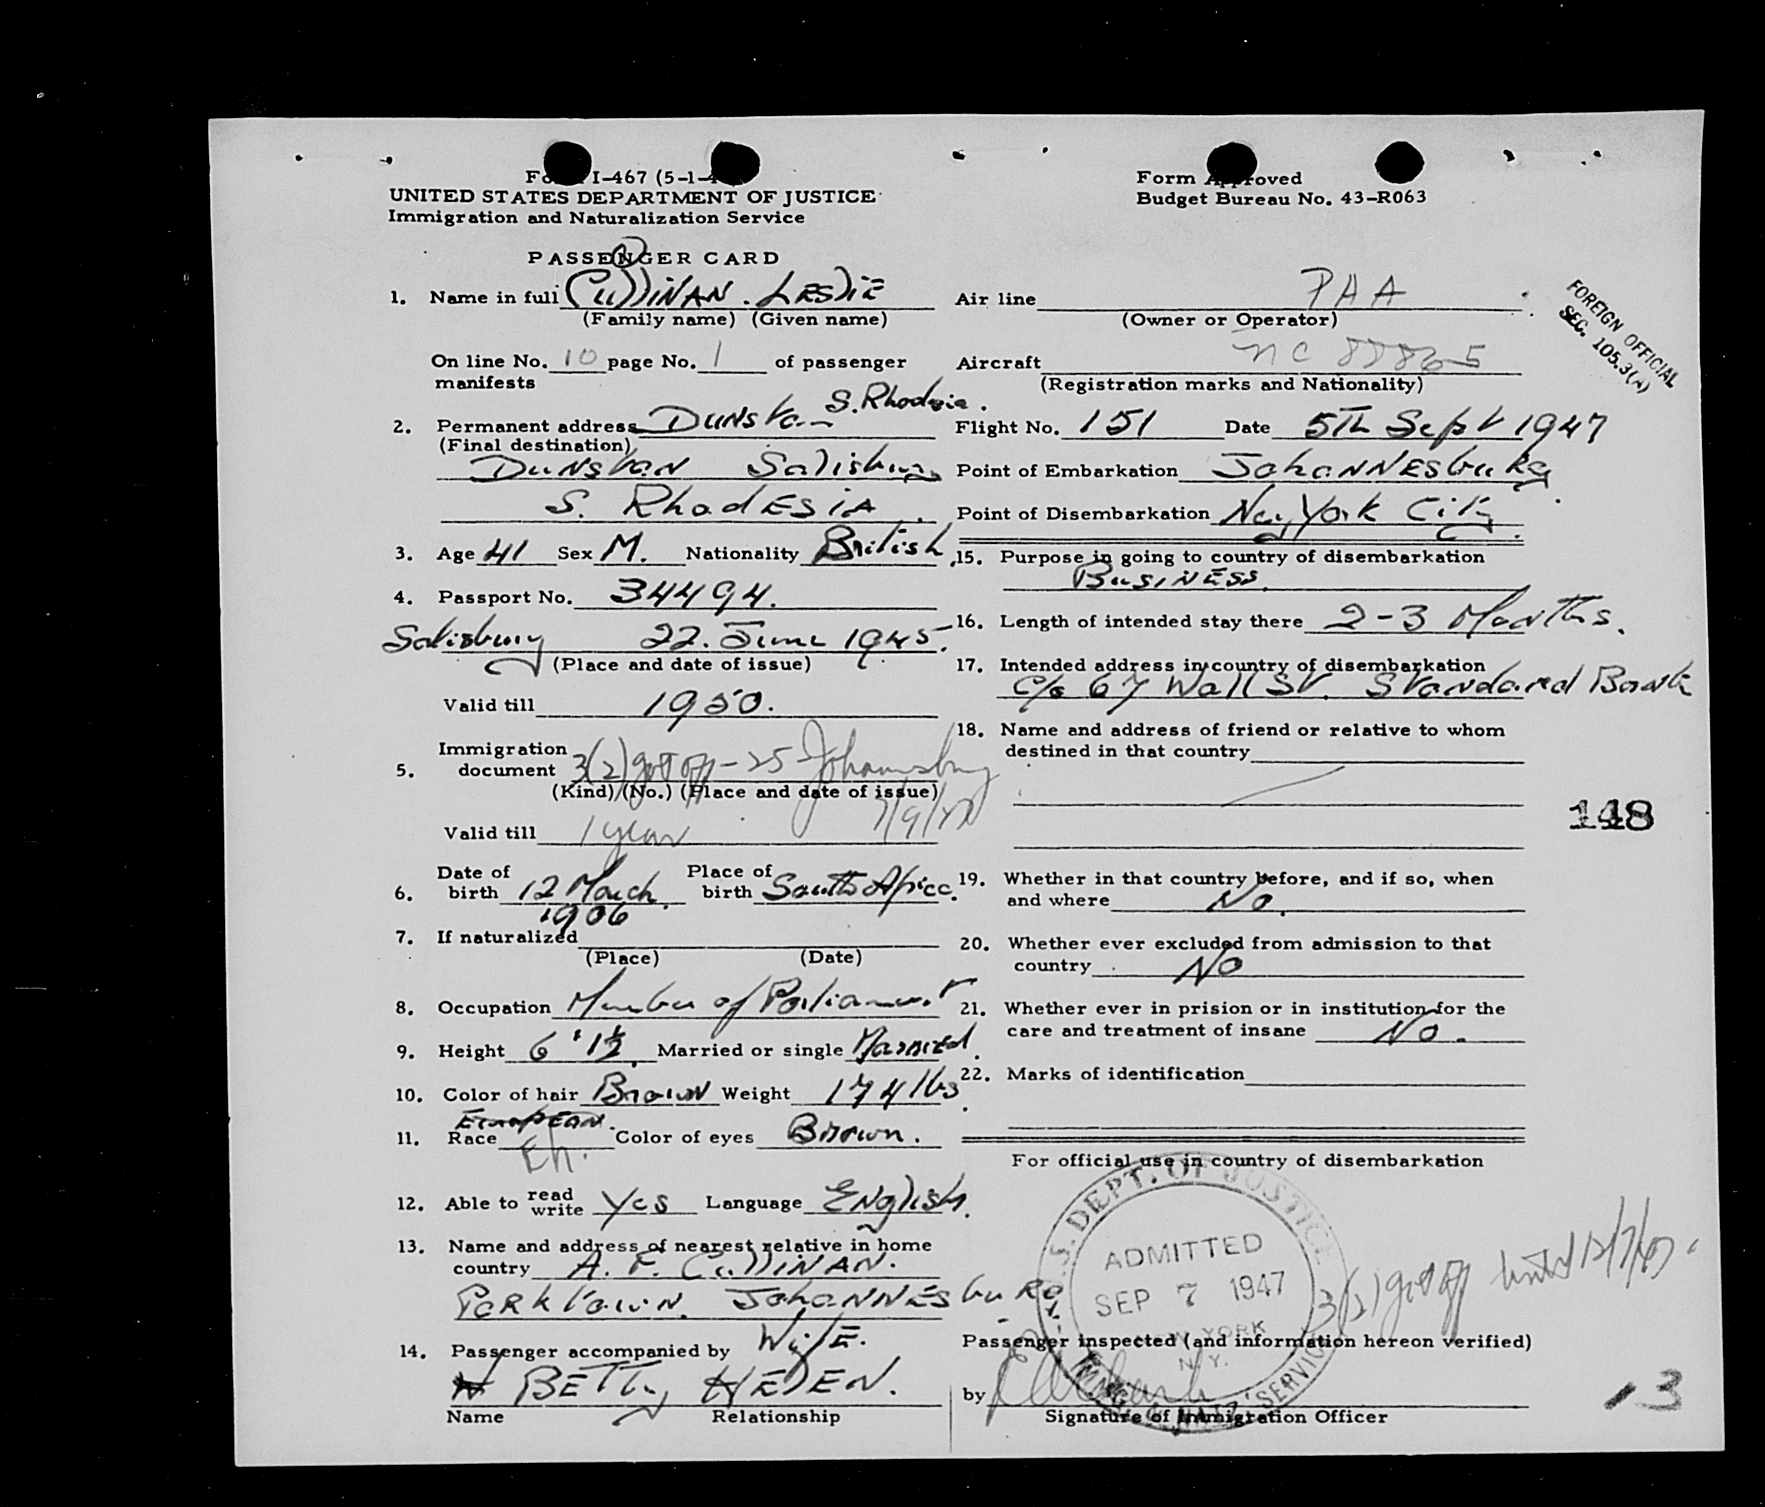 I-467 (5-1-
UNITED STATES DEPARTMENT OF JUSTICE
Immigration and Naturalization Service
PASSENGER CARD
1. Name in full CULLINAN. LESLIE
(Family name) (Given name)
On line No. 10 page No. 1 of passenger
manifests
S. Rhodesia.
2. Permanent address Dunstan
(Final destination)
DUNSTAN Salisbury
S. RhodESiA.
3. Age 41 Sex M. Nationality British.
4. Passport No. 34494.
Salisbury 22. June 1945.
(Place and date of issue)
Valid till 1950.
Immigration
5. document 3(2) gov't off - 25 Johannesburg
(Kind) (No.) (Place and date of issue)
Valid till 1 year
Date of Place of
6. birth 12 March. birth South Africa.
1906
7. If naturalized
(Place) (Date)
8. Occupation Member of Parliament
9. Height 6'1½ Married or single Married.
10. Color of hair Brown Weight 174 lbs.
European.
11. Race Color of eyes Brown.
Eh.
12. Able to read write Yes Language ENglish.
13. Name and address of nearest relative in home
country A. F. CULLINAN.
Parktown. JohANNESbuRg.
14. Passenger accompanied by WifE.
BETTy HELEN.
Name Relationship
Form Approved
Budget Bureau No. 43-R063
Air line PAA
(Owner or Operator)
Aircraft NC 88865
(Registration marks and Nationality)
FOREIGN OFFICIAL
SEC. 105.3(A)
Flight No. 151 Date 5Th Sept 1947
Point of Embarkation JohANNESbuRg.
Point of Disembarkation New York City.
15. Purpose in going to country of disembarkation
BUSINESS.
16. Length of intended stay there 2-3 Months.
17. Intended address in country of disembarkation
c/o 67 Wall St. Standard Bank
18. Name and address of friend or relative to whom
destined in that country
148
19. Whether in that country before, and if so, when
and where No.
20. Whether ever excluded from admission to that
country No
21. Whether ever in prision or in institution for the
care and treatment of insane No.
22. Marks of identification
For official use in country of disembarkation
U.S. DEPT. OF JUSTICE
ADMITTED
SEP 7 1947
NEW YORK
N.Y.
IMMIG. & NATZ. SERVICE
3(2) gov't off until 12/7/47
Passenger inspected (and information hereon verified)
by
Signature of Immigration Officer
13